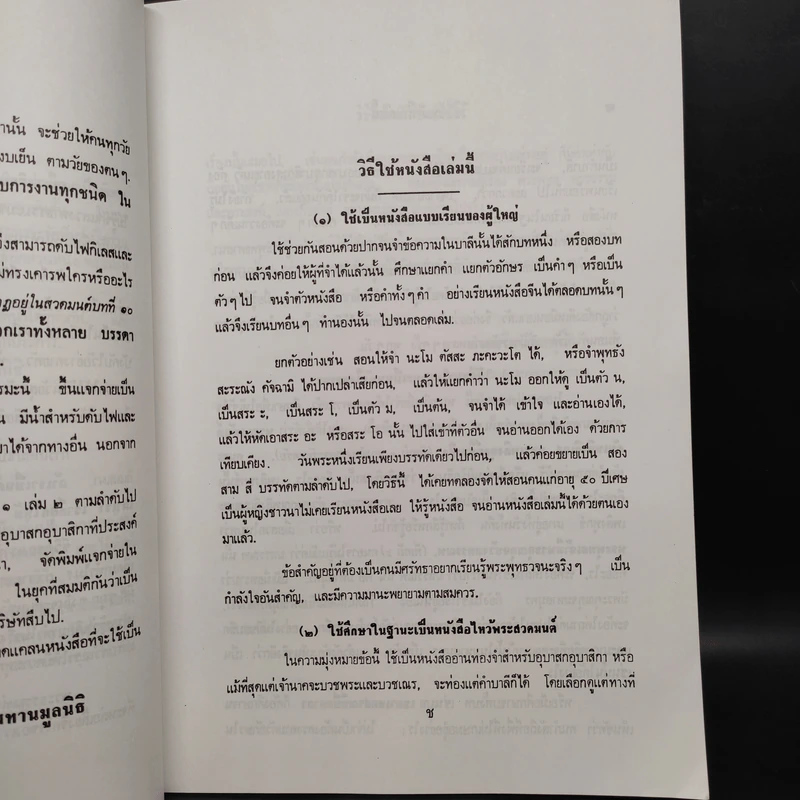 านั้น จะช่วยให้คนทุกวัย
งบเย็น ตามวัยของตนๆ.
บการงานทุกชนิด ใน
จึงสามารถดับไฟกิเลสและ
ม่ทรงเคารพใครหรืออะไร
ฏอยู่ในสวดมนต์บทที่ ๑๐
วกเราทั้งหลาย บรรดา
รมะนี้ ขึ้นแจกจ่ายเป็น
น มีน้ำสำหรับดับไฟและ
าได้จากทางอื่น นอกจาก
๑ เล่ม ๒ ตามลำดับไป
อุบาสกอุบาสิกาที่ประสงค์
า, จัดพิมพ์แจกจ่ายใน
ในยุคที่สมมติกันว่าเป็น
ริษัทสืบไป.
ดแคลนหนังสือที่จะใช้เป็น
มทานมูลนิธิ
วิธีใช้หนังสือเล่มนี้
(๑) ใช้เป็นหนังสือแบบเรียนของผู้ใหญ่
ใช้ช่วยกันสอนด้วยปากจนจำข้อความในบาลีนั้นได้สักบทหนึ่ง หรือสองบท
ก่อน แล้วจึงค่อยให้ผู้ที่จำได้แล้วนั้น ศึกษาแยกคำ แยกตัวอักษร เป็นคำๆ หรือเป็น
ตัวๆไป จนจำตัวหนังสือ หรือคำทั้งๆคำ อย่างเรียนหนังสือจีนได้ตลอดบทนั้นๆ
แล้วจึงเรียนบทอื่นๆ ทำนองนั้น ไปจนตลอดเล่ม.
ยกตัวอย่างเช่น สอนให้จำ นะโม ตัสสะ ภะคะวะโต ได้, หรือจำพุทธัง
สะระณัง คัจฉามิ ได้ปากเปล่าเสียก่อน, แล้วให้แยกคำว่า นะโม ออกให้ดู เป็นตัว น,
เป็นสระ ะ, เป็นสระ โ, เป็นตัว ม, เป็นต้น, จนจำได้ เข้าใจ และอ่านเองได้,
แล้วให้หัดเอาสระ อะ หรือสระ โอ นั้น ไปใส่เข้าที่ตัวอื่น จนอ่านออกได้เอง ด้วยการ
เทียบเคียง. วันพระหนึ่งเรียนเพียงบรรทัดเดียวไปก่อน, แล้วค่อยขยายเป็น สอง
สาม สี่ บรรทัดตามลำดับไป, โดยวิธีนี้ ได้เคยทดลองจัดให้สอนคนแก่อายุ ๕๐ ปีเศษ
เป็นผู้หญิงชาวนาไม่เคยเรียนหนังสือเลย ให้รู้หนังสือ จนอ่านหนังสือเล่มนี้ได้ด้วยตนเอง
มาแล้ว.
ข้อสำคัญอยู่ที่ต้องเป็นคนมีศรัทธาอยากเรียนรู้พระพุทธวจนะจริงๆ เป็น
กำลังใจอันสำคัญ, และมีความมานะพยายามตามสมควร.
(๒) ใช้ศึกษาในฐานะเป็นหนังสือไหว้พระสวดมนต์
ในความมุ่งหมายข้อนี้ ใช้เป็นหนังสืออ่านท่องจำสำหรับอุบาสกอุบาสิกา หรือ
แม้ที่สุดแต่เจ้านาคจะบวชพระและบวชเณร, จะท่องแต่คำบาลีก็ได้ โดยเลือกดูแต่ทางที่
ช